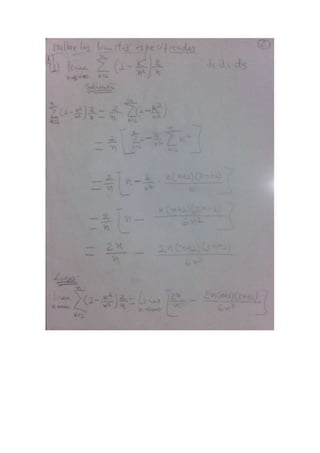 Halle los limites especificados 2
1) lim n→+∞ Σ k=1 n (1 - k²/n²) 2/n
Solución
Σ k=1 n (1 - k²/n²) 2/n = 2/n Σ k=1 n (1 - k²/n²)
= 2/n [ Σ k=1 n 1 - 1/n² Σ k=1 n k² ]
= 2/n [ n - 1/n² · n(n+1)(2n+1)/6 ]
= 2/n [ n - n(n+1)(2n+1)/6n² ]
= 2n/n - 2n(n+1)(2n+1)/6n³
Luego
lim n→+∞ Σ k=1 n (1 - k²/n²) 2/n = lim n→+∞ [ 2n/n - 2n(n+1)(2n+1)/6n³ ]